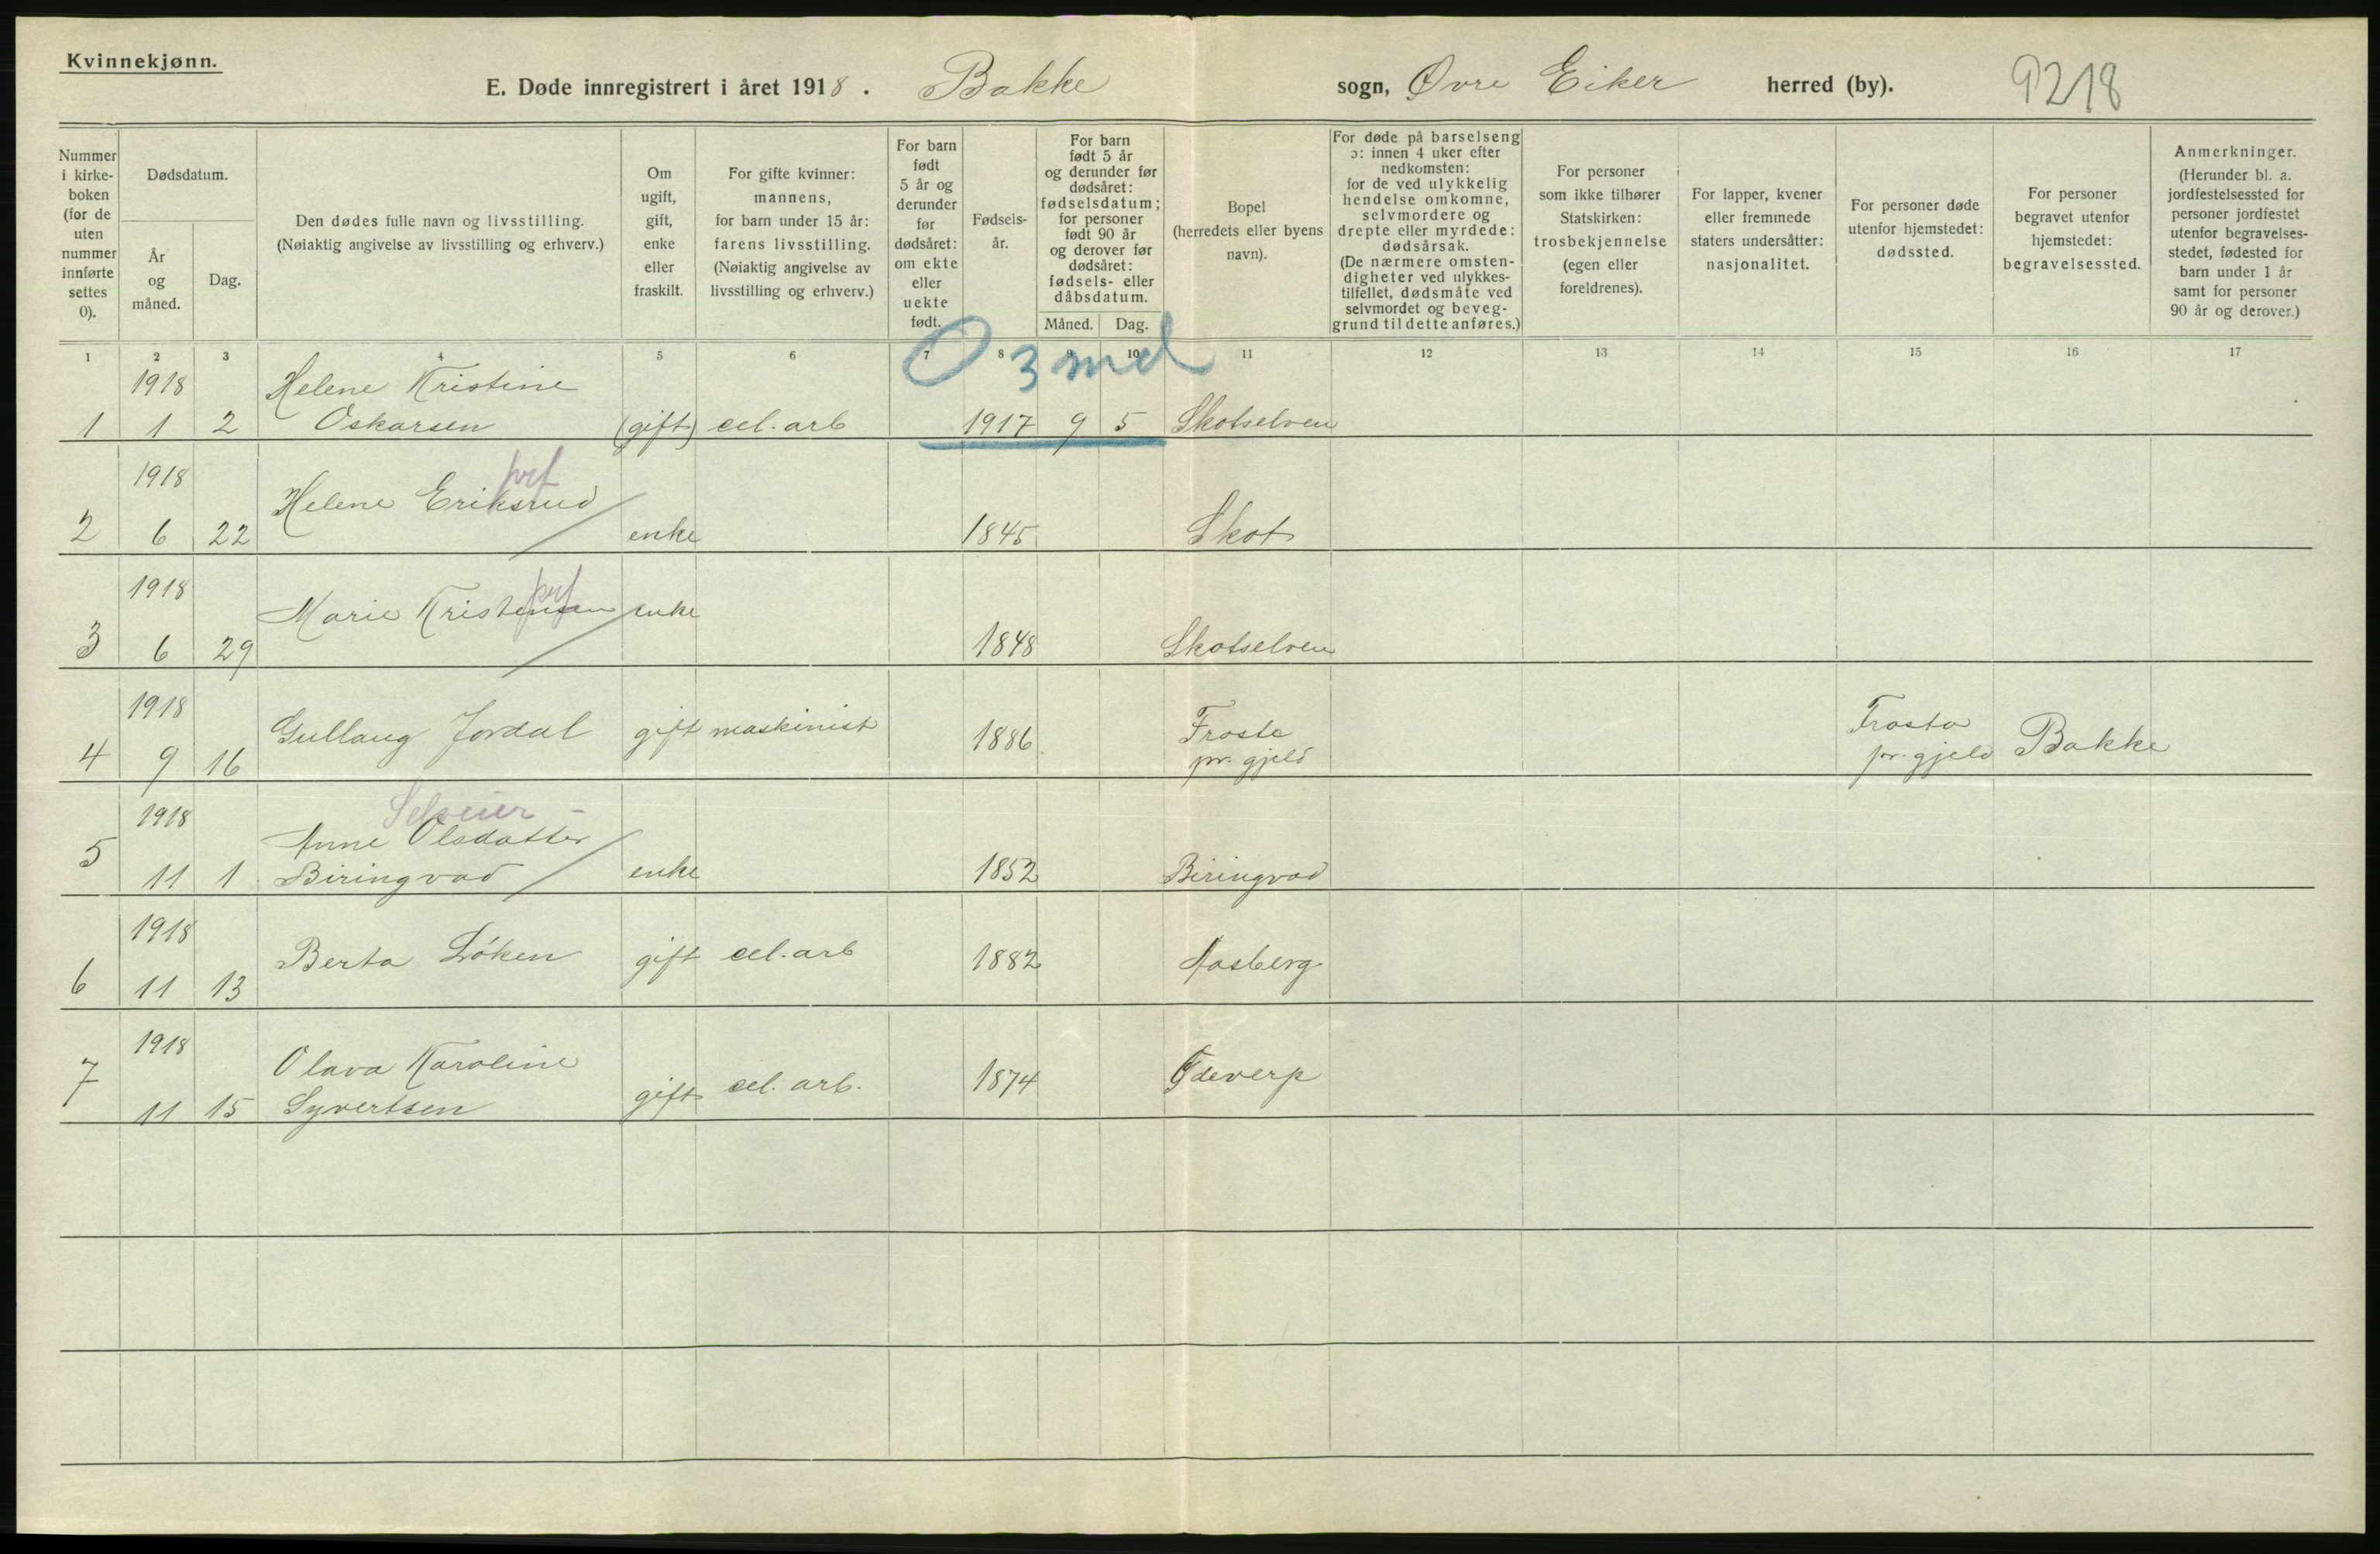 Kvinnekjønn.
E. Døde innregistrert i året 1918. Bakke sogn, Øvre Eiker herred (by). 9218
Nummer i kirke- boken (for de uten nummer innførte settes 0).
Dødsdatum.
År og måned.
Dag.
Den dødes fulle navn og livsstilling.
(Nøiaktig angivelse av livsstilling og erhverv.)
Om ugift, gift, enke eller fraskilt.
For gifte kvinner: mannens, for barn under 15 år: farens livsstilling. (Nøiaktig angivelse av livsstilling og erhverv.)
For barn født 5 år og derunder før dødsåret: om ekte eller uekte født.
Fødsels- år.
For barn født 5 år og derunder før dødsåret: fødselsdatum; for personer født 90 år og derover før dødsåret: fødsels- eller dåbsdatum.
Måned. Dag.
Bopel (herredets eller byens navn).
For døde på barselseng ɔ: innen 4 uker efter nedkomsten: for de ved ulykkelig hendelse omkomne, selvmordere og drepte eller myrdede: dødsårsak. (De nærmere omsten- digheter ved ulykkes- tilfellet, dødsmåte ved selvmordet og beveg- grund til dette anføres.)
For personer som ikke tilhører Statskirken: trosbekjennelse (egen eller foreldrenes).
For lapper, kvener eller fremmede staters undersåtter: nasjonalitet.
For personer døde utenfor hjemstedet: dødssted.
For personer begravet utenfor hjemstedet: begravelsessted.
Anmerkninger. (Herunder bl. a. jordfestelsessted for personer jordfestet utenfor begravelses- stedet, fødested for barn under 1 år samt for personer 90 år og derover.)
1 2 3 4 5 6 7 8 9 10 11 12 13 14 15 16 17
0 3 md
1918 Helene Kristine
1 1 2 Oskarsen (gift) cel. arb 1917 9 5 Skotselven
prf
1918 Helene Eriksrud
2 6 22 enke 1845 Skot
prf
1918 Marie Kristensen enke
3 6 29 1848 Skotselven
1918 Gullaug Jordal gift maskinist 1886 Froste Frosta
4 9 16 pr. gjeld pr. gjeld Bakke
Selveier -
1918 Anne Olsdatter
5 11 1 Biringvad enke 1852 Biringvad
1918 Berta Löken gift cel. arb 1882 Aasberg
6 11 13
1918 Olava Karoline
7 11 15 Syvertsen gift cel. arb. 1874